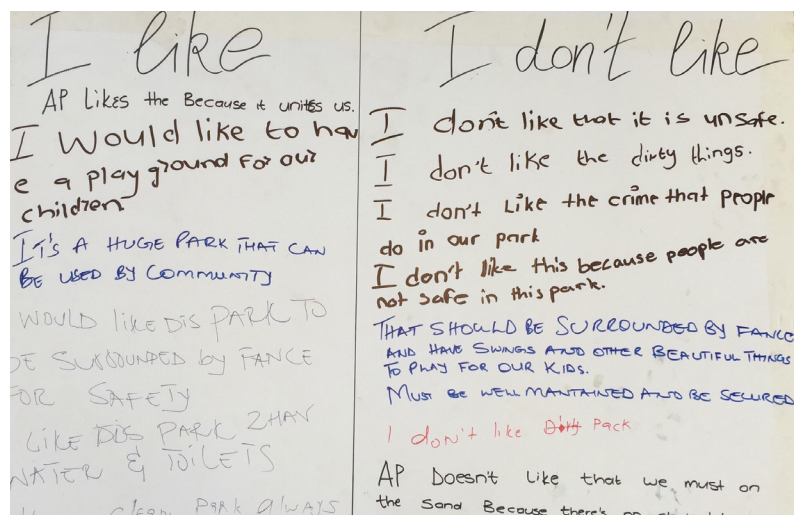 I like
AP Likes the Because it unites us.
I Would like to hav
e a playground for our
children
IT'S A HUGE PARK THAT CAN
BE USED BY COMMUNITY
WOULD like DIS PARK TO
BE SURROUNDED by FANCE
FOR SAFETY
LIKE DIS PARK 2HAV
WATER & TOILETS
clean Park always
I don't like
I don't like that it is unsafe.
I don't like the dirty things.
I don't Like the crime that People
do in our park
I don't like this because people are
not safe in this park.
THAT SHOULD BE SURROUNDED BY FANCE
AND HAVE SWINGS AND OTHER BEAUTIFUL THINGS
TO PLAY FOR OUR KIDS.
MUST BE WELL MANTAINED AND BE SECURED
I don't like Dirty Pack
AP Doesn't Like that we must on
the sand Because there's no